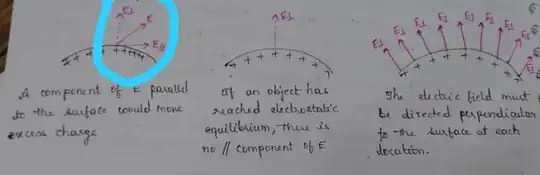 E⊥ E E∥
A component of E parallel
to the surface would move
excess charge
E⊥
If an object has
reached electrostatic
equilibrium, there is
no // component of E
E⊥ E⊥ E⊥ E⊥ E⊥ E⊥ E⊥ E⊥ E⊥
The electric field must
be directed perpendicular
to the surface at each
location.